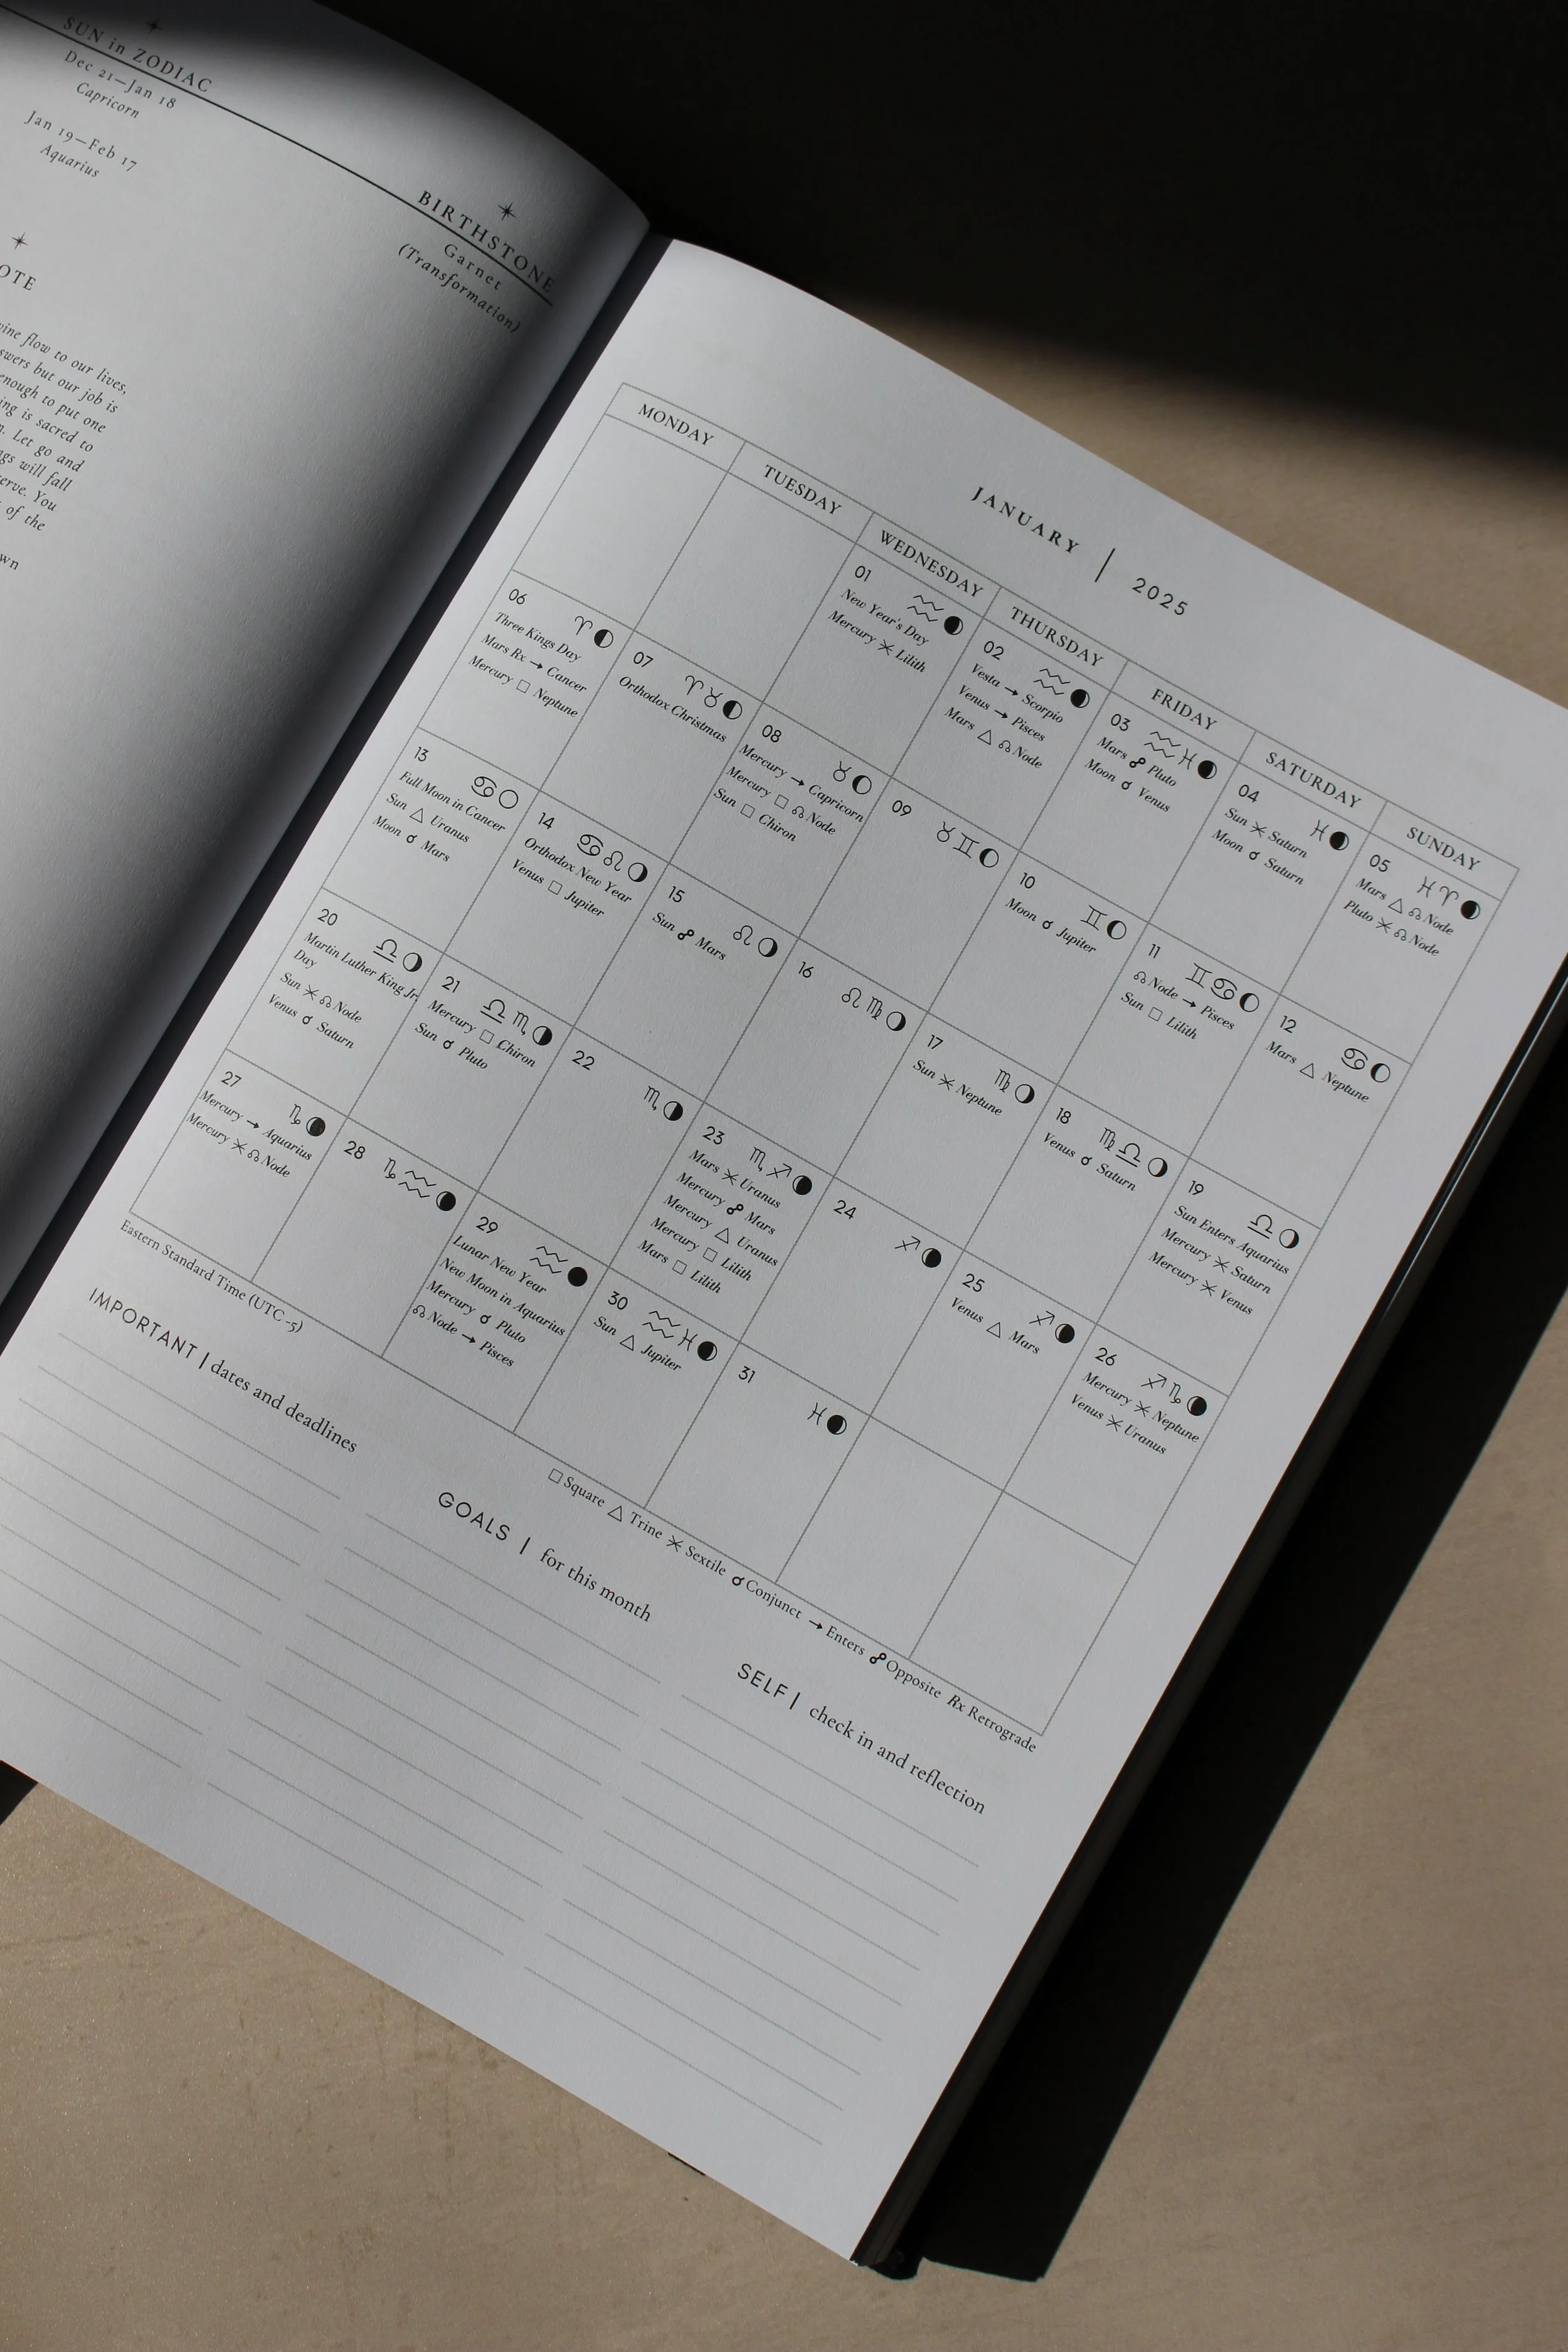 SUN in ZODIAC
Dec 21—Jan 18
Capricorn
Jan 19—Feb 17
Aquarius
BIRTHSTONE
Garnet
(Transformation)
flow to our lives,
but our job is
enough to put one
is sacred to
Let go and
will fall
You
of the
JANUARY | 2025
MONDAY TUESDAY WEDNESDAY THURSDAY FRIDAY SATURDAY SUNDAY
01 ♒
New Year's Day
Mercury ⚹ Lilith
02 ♒
Vesta → Scorpio
Venus → Pisces
Mars △ ☊ Node
03 ♒♓
Mars ☍ Pluto
Moon ☌ Venus
04 ♓
Sun ⚹ Saturn
Moon ☌ Saturn
05 ♓♈
Mars △ ☊ Node
Pluto ⚹ ☊ Node
06 ♈
Three Kings Day
Mars Rx → Cancer
Mercury □ Neptune
07 ♈♉
Orthodox Christmas
08 ♉
Mercury → Capricorn
Mercury □ ☊ Node
Sun □ Chiron
09 ♉♊
10 ♊
Moon ☌ Jupiter
11 ♊♋
☊ Node → Pisces
Sun □ Lilith
12 ♋
Mars △ Neptune
13 ♋
Full Moon in Cancer
Sun △ Uranus
Moon ☌ Mars
14 ♋♌
Orthodox New Year
Venus □ Jupiter
15 ♌
Sun ☍ Mars
16 ♌♍
17 ♍
Sun ⚹ Neptune
18 ♍♎
Venus ☌ Saturn
19 ♎
Sun Enters Aquarius
Mercury ⚹ Saturn
Mercury ⚹ Venus
20 ♎
Martin Luther King Jr.
Day
Sun ⚹ ☊ Node
Venus ☌ Saturn
21 ♎♏
Mercury □ Chiron
Sun ☌ Pluto
22 ♏
23 ♏♐
Mars ⚹ Uranus
Mercury ☍ Mars
Mercury △ Uranus
Mercury □ Lilith
Mars □ Lilith
24 ♐
25 ♐
Venus △ Mars
26 ♐♑
Mercury ⚹ Neptune
Venus ⚹ Uranus
27 ♑
Mercury → Aquarius
Mercury ⚹ ☊ Node
28 ♑♒
29 ♒
Lunar New Year
New Moon in Aquarius
Mercury ☌ Pluto
☊ Node → Pisces
30 ♒♓
Sun △ Jupiter
31 ♓
Eastern Standard Time (UTC -5)
□ Square △ Trine ⚹ Sextile ☌ Conjunct → Enters ☍ Opposite Rx Retrograde
IMPORTANT | dates and deadlines
GOALS | for this month
SELF | check in and reflection